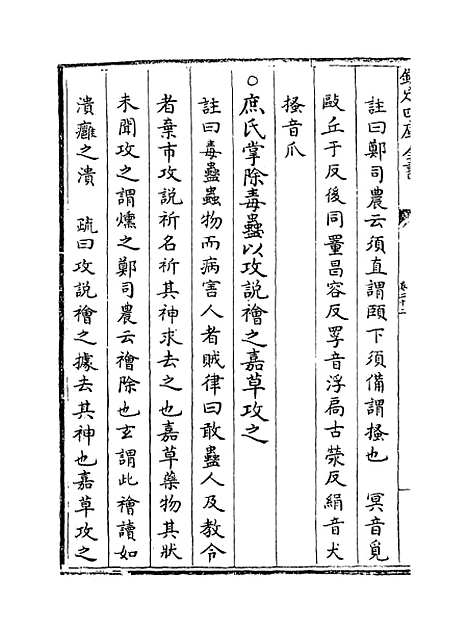 欽定四庫全書
卷二十二
註曰鄭司農云須直謂頤下須備謂搔也　冥音覓
敺丘于反後同罿昌容反罦音浮扃古熒反絹音犬
搔音爪
○庶氏掌除毒蠱以攻說禬之嘉草攻之
註曰毒蠱蟲物而病害人者賊律曰敢蠱人及教令
者棄市攻說祈名祈其神求去之也嘉草藥物其狀
未聞攻之謂燻之鄭司農云禬除也玄謂此禬讀如
潰癰之潰　疏曰攻說禬之據去其神也嘉草攻之